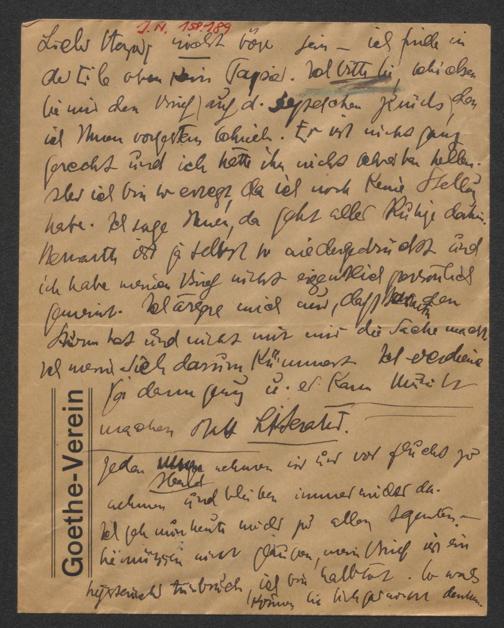 I.N. 158.189
Lieber Herzog nicht böse sein – ich finde in
der Eile oben kein Papier. Ich bitte Sie, schicken
Sie mir den Brief, auf d. zurück, den
ich Ihnen vorgestern schrieb. Er ist nicht ganz
gerecht und ich hätte ihn nicht schreiben sollen.
Aber ich bin so erregt, da ich noch keine Stellung
habe. Ich sage Ihnen, da geht alle Ruhe dahin.
ist ja selbst so niedergedrückt und
ich habe meinen Brief nicht eigentlich persönlich
gemeint. Ich ärgere mich nur, daß er den
Sturm hat und nicht mit mir die Sache macht
Ich verdiene
dann genug u. er kann Musik
machen statt Literatur.
Jeden nehmen wir uns vor Flucht zu
nehmen und bleiben immer wieder da.
Ich geh nun heute wieder zu allen Agenten. –
Sie müssen nicht glauben, mein Brief ist ein
hysterischer Ausbruch, ich bin halbtot. So was
können Sie sich gar nicht denken.
Goethe-Verein